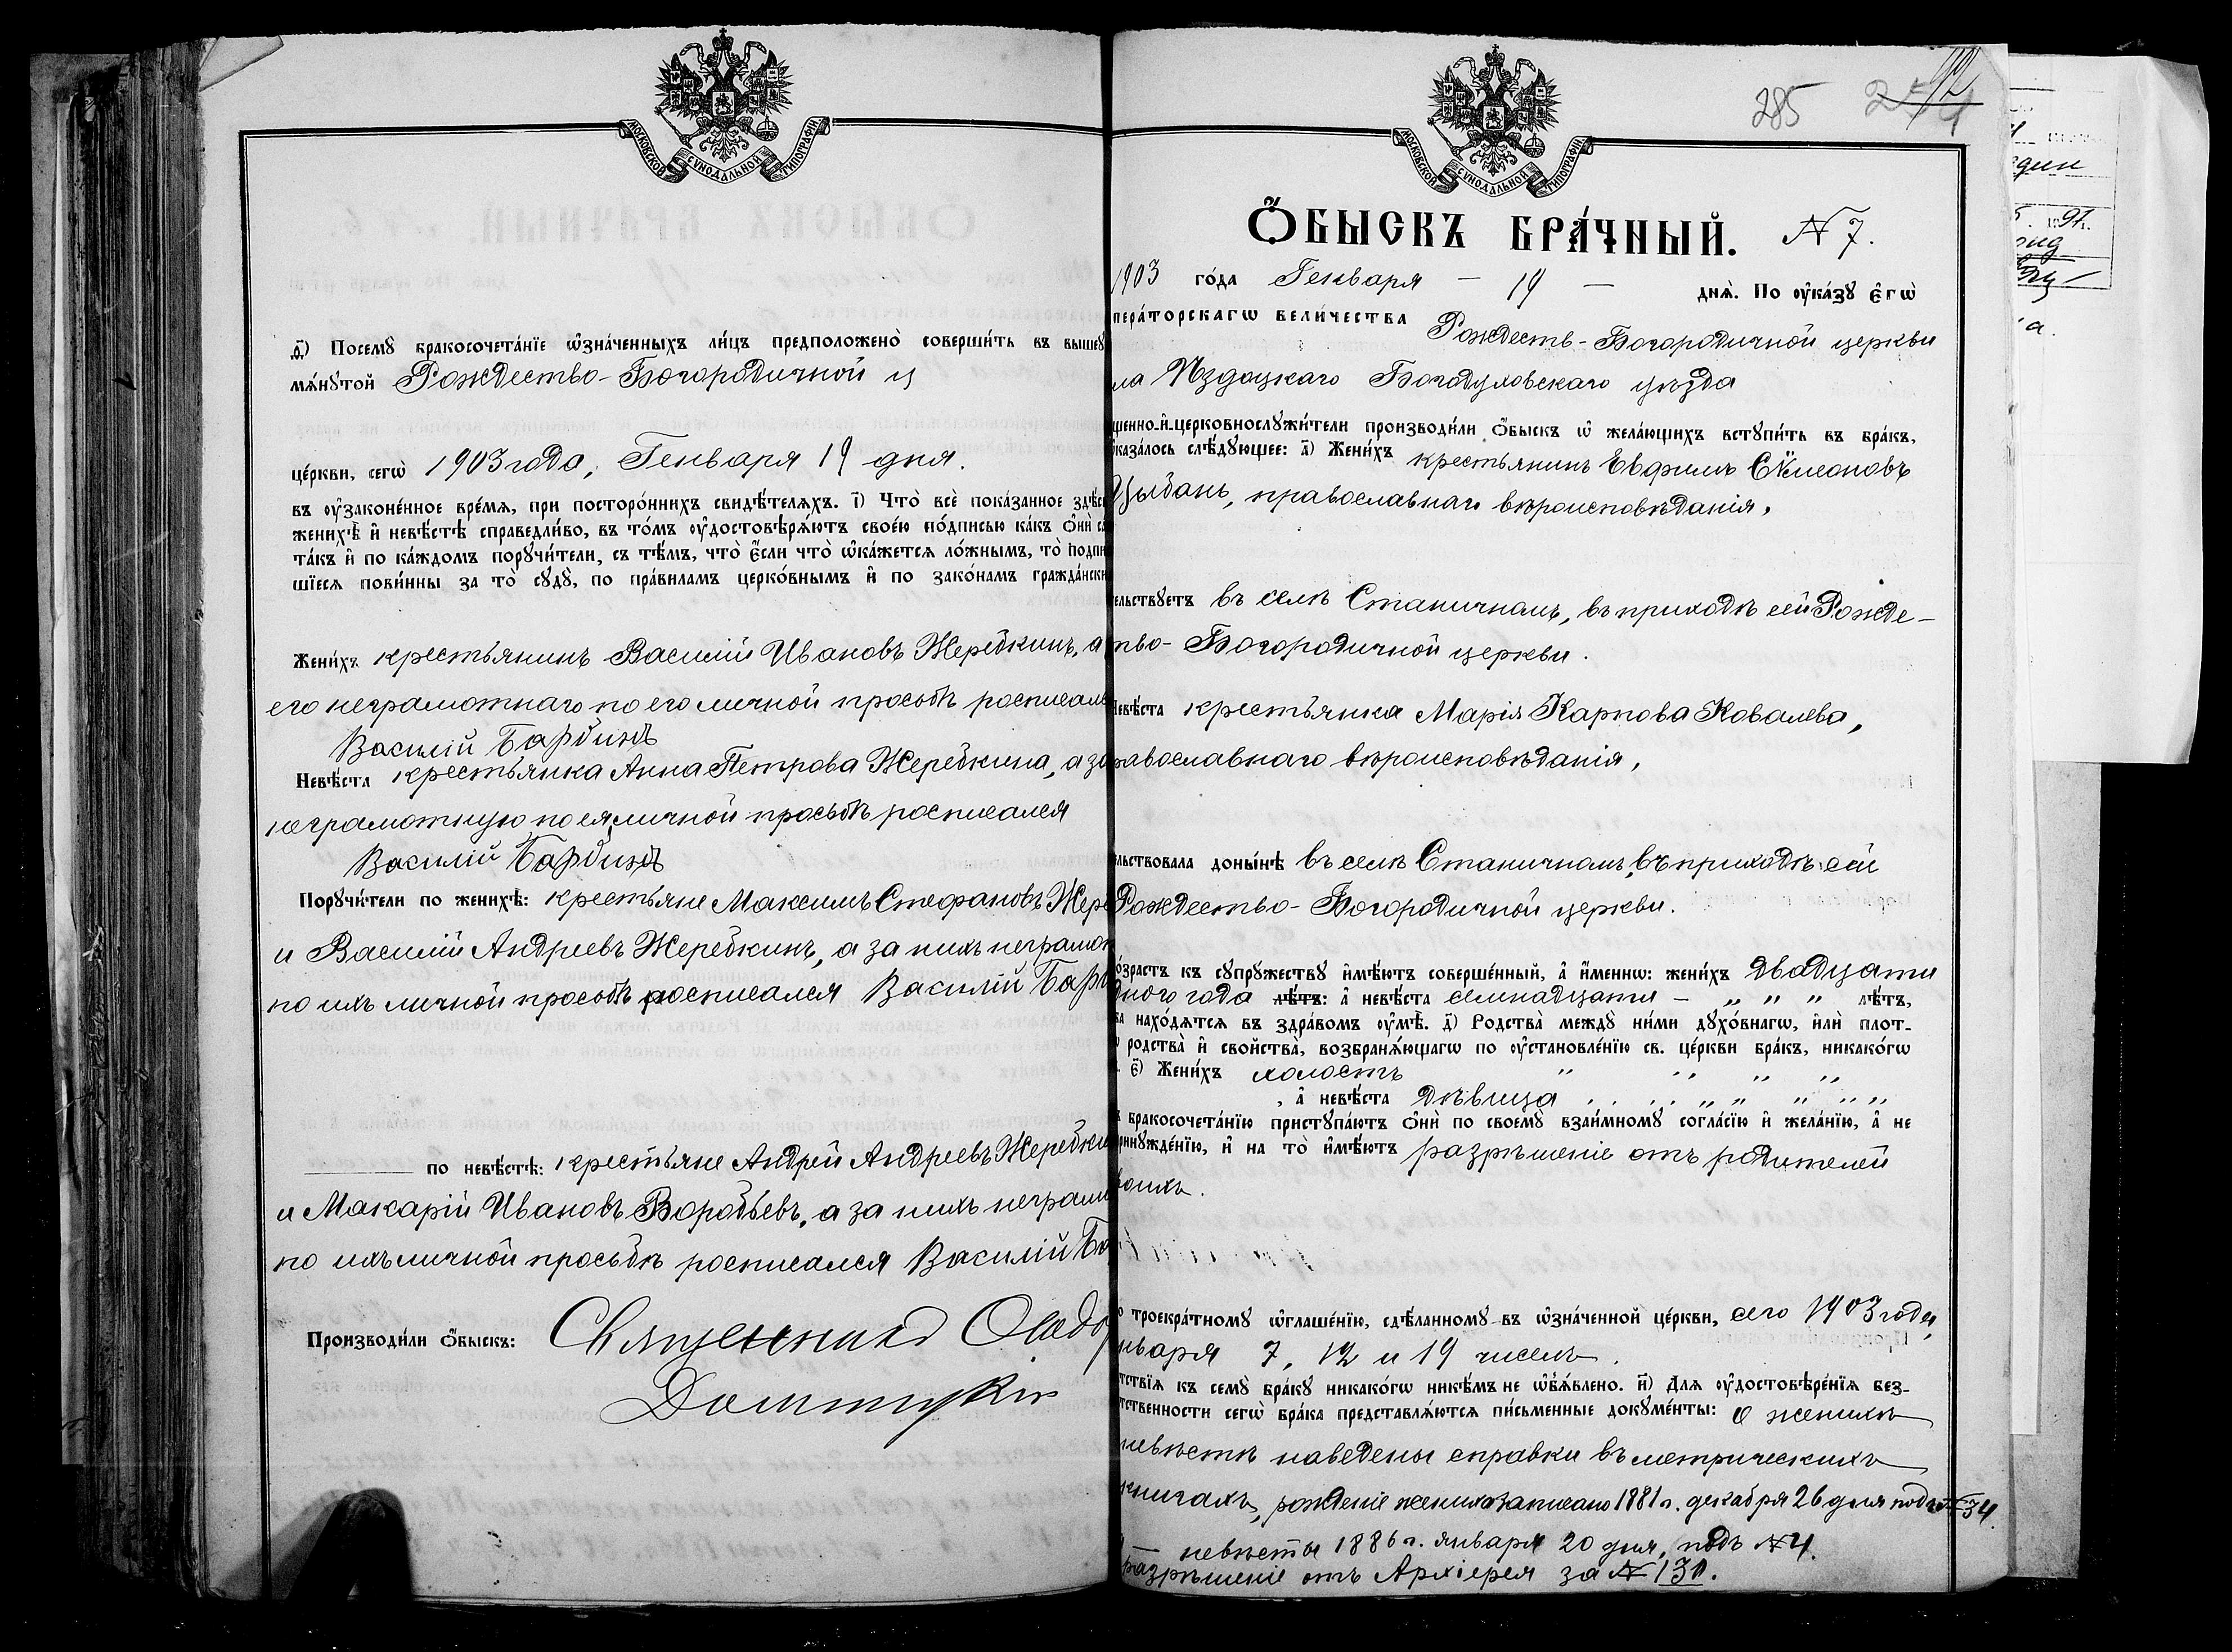 МОСКОВСКОЙ СУНОДАЛЬНОЙ ТИПОГРАФІИ
д҃) Посемꙋ бракосочета́нїе ѡ҆зна́ченныхъ ли́цъ предположено̀ соверши́ть въ вышеꙋ
мѧ́нꙋтой Рождество-Богородичной ц
це́ркви, сегѡ̀ 1903 года, Генваря 19 дня.
въ ᲂу҆законе́нное вре́мѧ, при посторо́ннихъ свидѣ́телѧхъ. і҃) Что̀ всѐ пока́занное здѣ́с
женихѣ̀ и҆ невѣ́стѣ справедли́во, въ то́мъ ᲂу҆достовѣрѧ́ютъ свое́ю по́дписью ка́къ ѻ҆нѝ с
та́къ и҆ по ка́ждомъ порꙋчи́тели, съ тѣ́мъ, что̀ є҆́сли что̀ ѡ҆ка́жетсѧ ло́жнымъ, то̀ подпи
шїесѧ пови́нны за то̀ сꙋдꙋ̀, по пра́виламъ церко́внымъ и҆ по зако́намъ гражда́нски
Жени́хъ крестьянинъ Василій Ивановъ Жеребкинъ, а
его неграмотнаго по его личной просьбѣ росписалъ
Василій
Невѣ́ста крестьянка Анна Петрова Жеребкина, а за
неграмотную по ея личной просьбѣ росписался
Василій
Порꙋчи́тели по женихѣ̀: крестьяне Максимъ Стефановъ Жере
и Василій Андреевъ Жеребкинъ, а за нихъ неграмот
по ихъ личной просьбѣ росписался Василій
по невѣ́стѣ: крестьяне Андрей Андреевъ Жеребки
и Макарій Ивановъ Воробьевъ, а за нихъ неграм
по ихъ личной просьбѣ росписался Василій
Производи́ли ѻ҆́быскъ: Священникъ Ѳеодо
285
92
МОСКОВСКОЙ СУНОДАЛЬНОЙ ТИПОГРАФІИ
Ѻ҆́БЫСКЪ БРА́ЧНЫЙ. № 7.
1903 го́да Генваря — 19 — днѧ̀. По ᲂу҆ка́зꙋ є҆гѡ̀
пера́торскагѡ вели́чества Рождеств-Богородичной церкви
ла Богодуховскаго уѣзда
щенно-и҆-церковнослꙋжи́тели производи́ли ѻ҆́быскъ ѡ҆ жела́ющихъ встꙋпи́ть въ бра́къ,
каза́лось слѣ́дꙋющее: а҃) Жени́хъ крестьянинъ Евфимъ Сѵмеоновъ
Цыбань, православнаго вѣроисповѣданія,
ельствꙋетъ въ селѣ Станичномъ, въ приходѣ сей Рожде-
тво-Богородичной церкви.
Невѣ́ста крестьянка Марія Карпова Ковалева,
равославнаго вѣроисповѣданія,
льствовала доны́нѣ въ селѣ Станичномъ, въ приходѣ сей
Рождество-Богородичной церкви.
о́зрастъ къ сꙋпрꙋжествꙋ и҆мѣ́ютъ соверше́нный, а҆ и҆́меннѡ: жени́хъ двадцати
дного года лѣ́тъ: а҆ невѣ́ста семнадцати — „ „ „ лѣ́тъ,
ба нахо́дѧтсѧ въ здра́вомъ ᲂу҆мѣ̀. д҃) Родства̀ междꙋ̀ ни́ми дꙋхо́внагѡ, и҆лѝ плот-
ѡ родства̀ и҆ свойства̀, возбранѧ́ющагѡ по ᲂу҆становле́нїю св. це́ркви бра́къ, никако́гѡ
є҃) Жени́хъ холостъ „ „ „ „
, а҆ невѣ́ста дѣвица „ „ „ „ „
ъ бракосочета́нїю пристꙋпа́ютъ ѻ҆нѝ по своемꙋ̀ взаи́мномꙋ согла́сїю и҆ жела́нїю, а҆ не
ринꙋжде́нїю, и҆ на то̀ и҆мѣ́ютъ разрѣшеніе отъ родителей
воихъ.
о троекра́тномꙋ ѡ҆глаше́нїю, сдѣ́ланномꙋ въ ѡ҆зна́ченной це́ркви, сего 1903 года,
нваря 7, 12 и 19 чиселъ.
тствїѧ къ семꙋ̀ бра́кꙋ никако́гѡ никѣ́мъ не ѡ҆бъѧ́влено. и҃) Длѧ ᲂу҆достовѣре́нїѧ без-
тственности сегѡ̀ бра́ка представлѧ́ютсѧ пи́сьменные докꙋме́нты: О женихѣ
невѣстѣ наведены справки въ метрическихъ
книгахъ, рожденіе жениха записано 1881 г. декабря 26 дня подъ № 34.
невѣсты 1886 г. января 20 дня, подъ № 4.
разрѣшеніе отъ Архіерея за № 130.